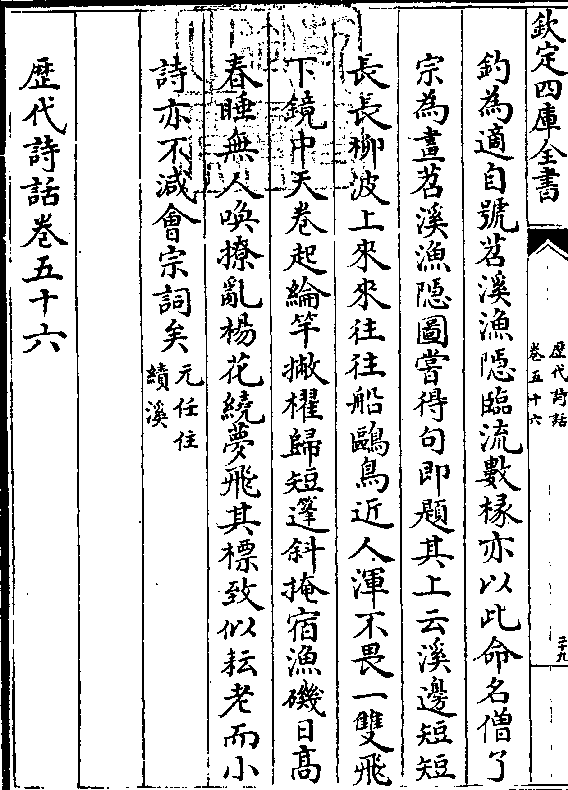 欽定四庫全書
歷代詩話
卷五十六
二十九
釣為適自號苕溪漁隱臨流數椽亦以此命名僧了
宗為畫苕溪漁隱圖嘗得句即題其上云溪邊短短
長長柳波上來來往往船鷗鳥近人渾不畏一雙飛
下鏡中天卷起綸竿撇櫂歸短篷斜掩宿漁磯日高
春睡無人喚撩亂楊花繞夢飛其標致似耘老而小
詩亦不減會宗詞矣元任住
績溪
歷代詩話卷五十六